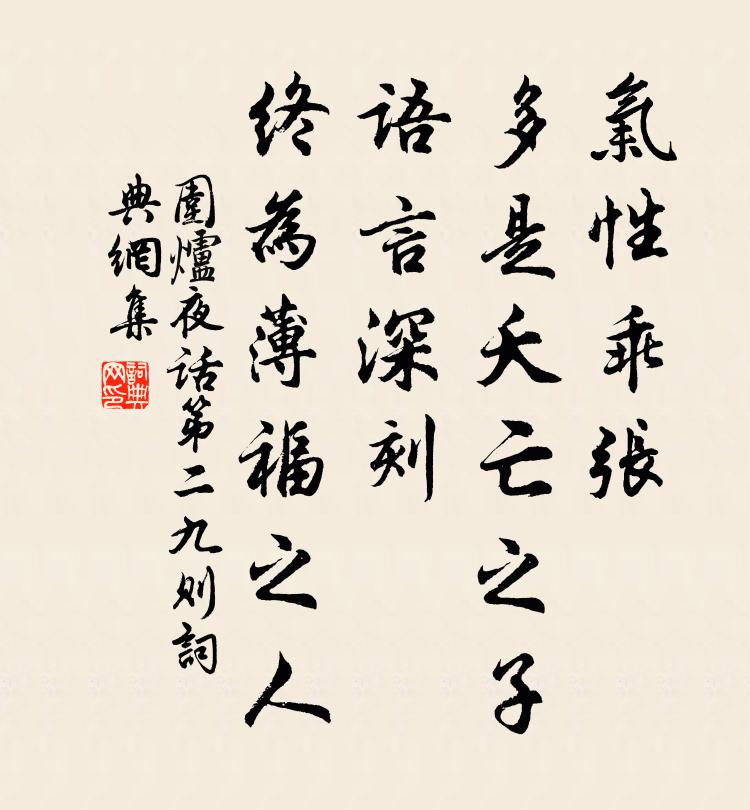 氣性乖張
多是夭亡之子
語言深刻
終為薄福之人
圍爐夜话第二九则詞
典網集
詞典网印